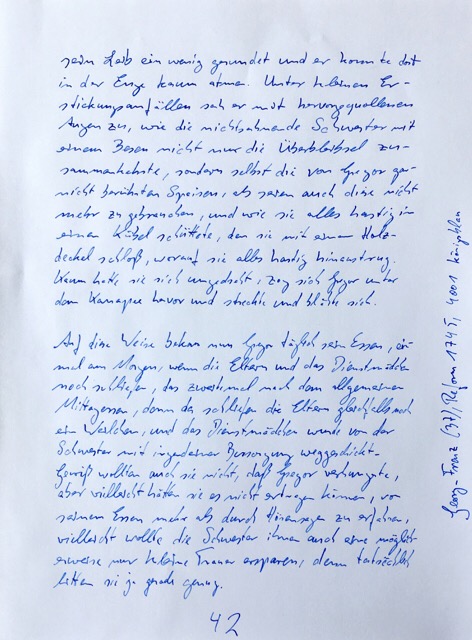 sein Leib ein wenig gerundet und er konnte dort
in der Enge kaum atmen. Unter kleinen Er-
stickungsanfällen sah er mit hervorgequollenen
Augen zu, wie die nichtsahnende Schwester mit
einem Besen nicht nur die Überbleibsel zu-
sammenkehrte, sondern selbst die von Gregor gar
nicht berührten Speisen, als seien auch diese nicht
mehr zu gebrauchen, und wie sie alles hastig in
einen Kübel schüttete, den sie mit einem Holz-
deckel schloß, worauf sie alles hastig hinaustrug.
Kaum hatte sie sich umgedreht, zog sich Gregor unter
dem Kanapee hervor und streckte und blähte sich.
Auf diese Weise bekam nun Gregor täglich sein Essen, ein-
mal am Morgen, wenn die Eltern und das Dienstmädchen
noch schliefen, das zweitemal nach dem allgemeinen
Mittagessen, denn da schliefen die Eltern gleichfalls noch
ein Weilchen, und das Dienstmädchen wurde von der
Schwester mit irgendeiner Besorgung weggeschickt.
Gewiß wollten auch sie nicht, daß Gregor verhungre,
aber vielleicht hätten sie es nicht ertragen können, von
seinem Essen mehr als durch Hörensagen zu erfahren,
vielleicht wollte die Schwester ihnen auch eine möglich-
erweise nur kleine Trauer ersparen, denn tatsächlich
litten sie ja gerade genug.
42
Georg-Franz (37), Reform 1745, 4001 königsblau